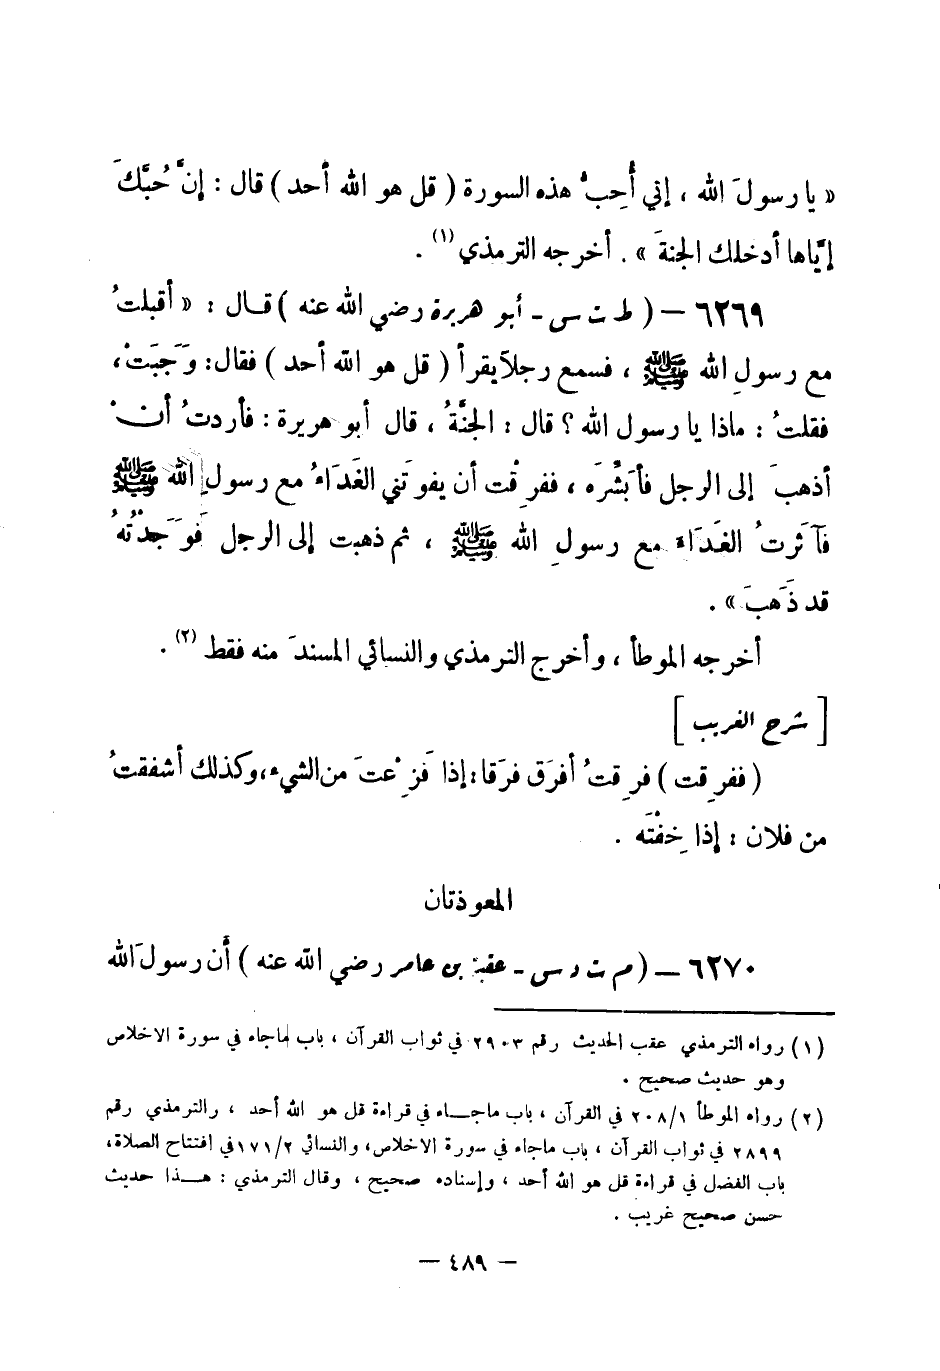 « يا رسولَ الله ، إني أُحِبُّ هذه السورة ( قل هو الله أحد ) قال : إنَّ حُبَّكَ
إيَّاها أدخلك الجنةَ » . أخرجه الترمذي (١) .
٦٢٦٩ – ( ط ت س - أبو هريرة رضي الله عنه ) قال : « أقبلتُ
مع رسولِ الله ﷺ ، فسمع رجلاً يقرأ ( قل هو الله أحد ) فقال : وَجَبَتْ ،
فقلتُ : ماذا يا رسول الله ؟ قال : الجنَّةُ ، قال أبو هريرة : فأردتُ أنْ
أذهبَ إلى الرجل فأبَشِّرَه ، ففرِقْت أن يفوتَني الغَدَاءُ مع رسولِ الله ﷺ
فآثَرتُ الغَدَاءَ مع رسولِ الله ﷺ ، ثم ذهبت إلى الرجل فَوَجَدْتُهُ
قد ذَهَبَ » .
أخرجه الموطأ ، وأخرج الترمذي والنسائي المسندَ منه فقط (٢) .
[ شرح الغريب ]
( ففرِقت ) فرِقتُ أفرَق فرَقا : إذا فَزِعْتَ من الشيء ، وكذلك أشفقتُ
من فلان : إذا خِفْتَه .
المعوذتان
٦٢٧٠ – ( م ت د س - عقبة بن عامر رضي الله عنه ) أن رسولَ الله
(١) رواه الترمذي عقب الحديث رقم ٢٩٠٣ في ثواب القرآن ، باب ماجاء في سورة الاخلاص
وهو حديث صحيح .
(٢) رواه الموطأ ٢٠٨/١ في القرآن ، باب ماجاء في قراءة قل هو الله أحد ، والترمذي رقم
٢٨٩٩ في ثواب القرآن ، باب ماجاء في سورة الاخلاص ، والنسائي ١٧١/٢ في افتتاح الصلاة ،
باب الفضل في قراءة قل هو الله أحد ، وإسناده صحيح ، وقال الترمذي : هذا حديث
حسن صحيح غريب .
– ٤٨٩ –